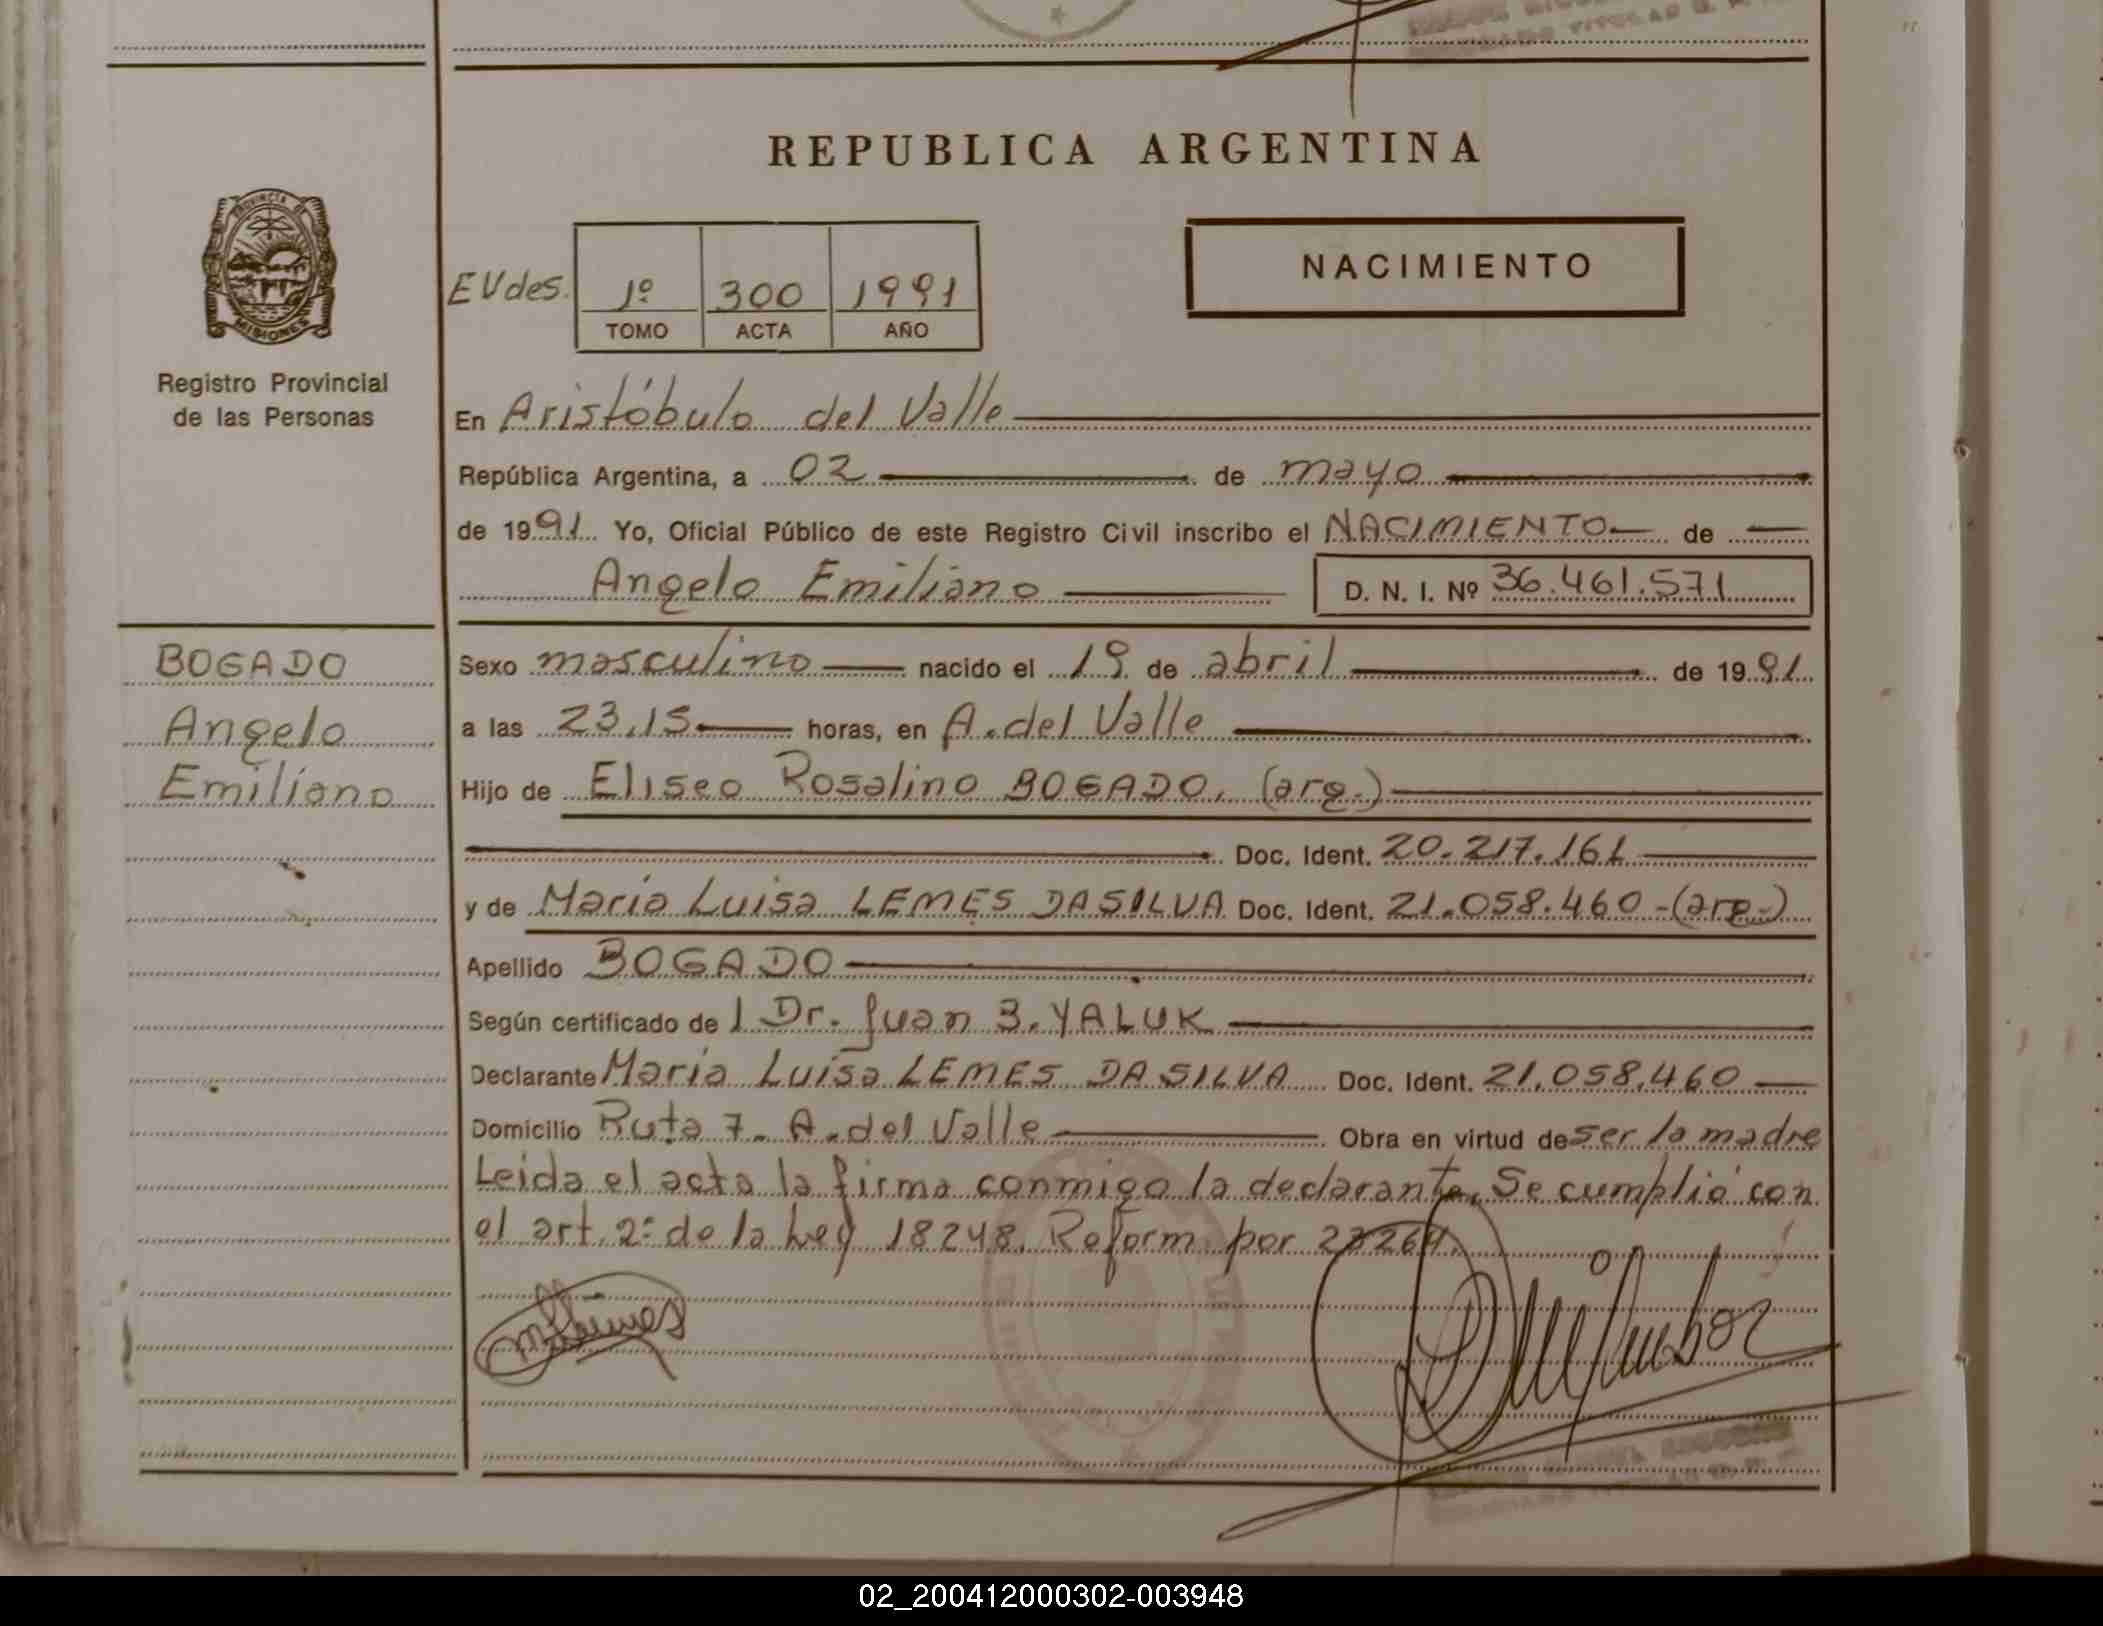 REPUBLICA ARGENTINA
PROVINCIA DE
MISIONES
Registro Provincial
de las Personas
EVdes. 1º 300 1991
TOMO ACTA AÑO
NACIMIENTO
En Aristóbulo del Valle
República Argentina, a 02 de mayo
de 1991 Yo, Oficial Público de este Registro Civil inscribo el NACIMIENTO de
Angelo Emiliano D. N. I. Nº 36.461.571
BOGADO
Angelo
Emiliano
Sexo masculino nacido el 19 de abril de 1991
a las 23,15 horas, en A. del Valle
Hijo de Eliseo Rosalino BOGADO. (arg.)
Doc. Ident. 20.217.161
y de María Luisa LEMES DASILVA Doc. Ident. 21.058.460-(arg.)
Apellido BOGADO
Según certificado de l Dr. Juan B. YALUK
Declarante María Luisa LEMES DA SILVA Doc. Ident. 21.058.460
Domicilio Ruta 7. A. del Valle Obra en virtud de ser la madre
Leida el acta la firma conmigo la declarante. Se cumplió con
el art. 2º de la Ley 18248. Reform por 23264.
02_200412000302-003948